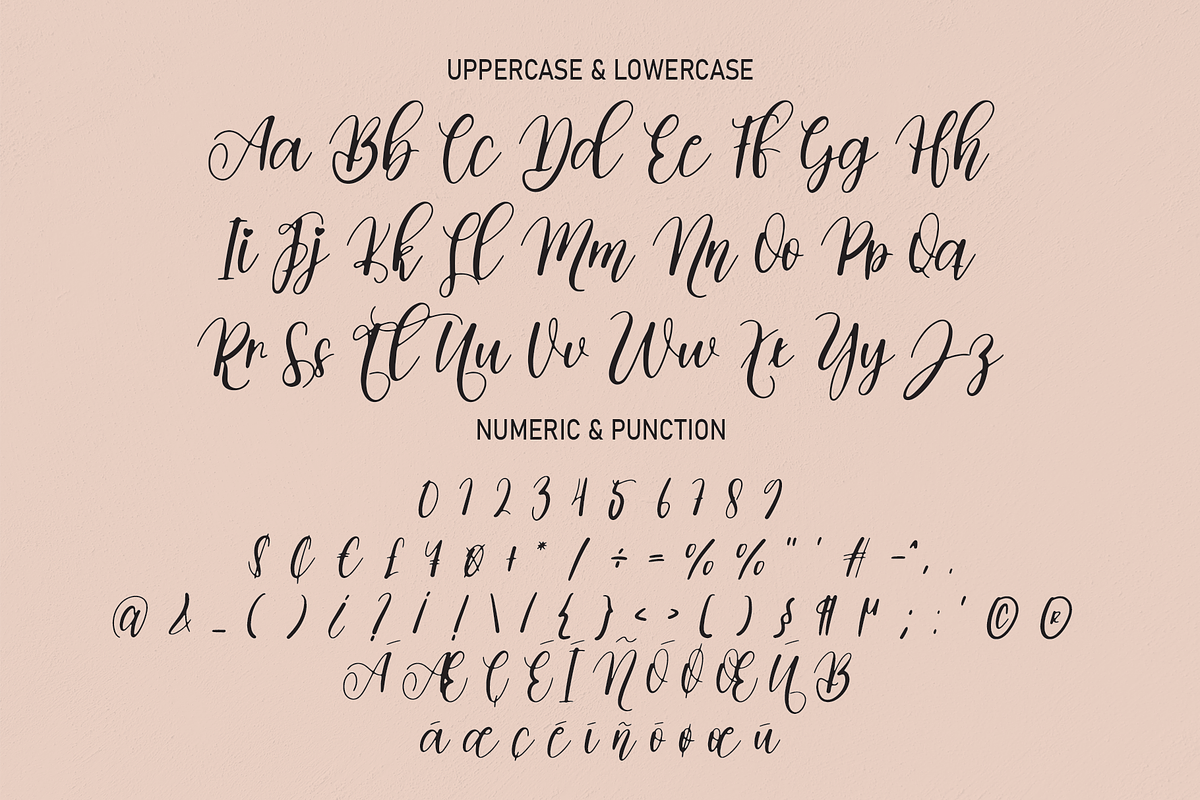 UPPERCASE & LOWERCASE
Aa Bb Cc Dd Ee Ff Gg Hh
Ii Jj Kk Ll Mm Nn Oo Pp Qq
Rr Ss Tt Uu Vv Ww Xx Yy Zz
NUMERIC & PUNCTION
0 1 2 3 4 5 6 7 8 9
$ ¢ € £ ¥ Ø + * / ÷ = % % " ' # - ^ , .
@ & _ ( ) ¿ ? ¡ ! \ / { } < > ( ) § ¶ µ ; : ' © ®
Á Æ Ç É Í Ñ Ó Ø Œ Ú B
á æ ç é í ñ ó ø œ ú